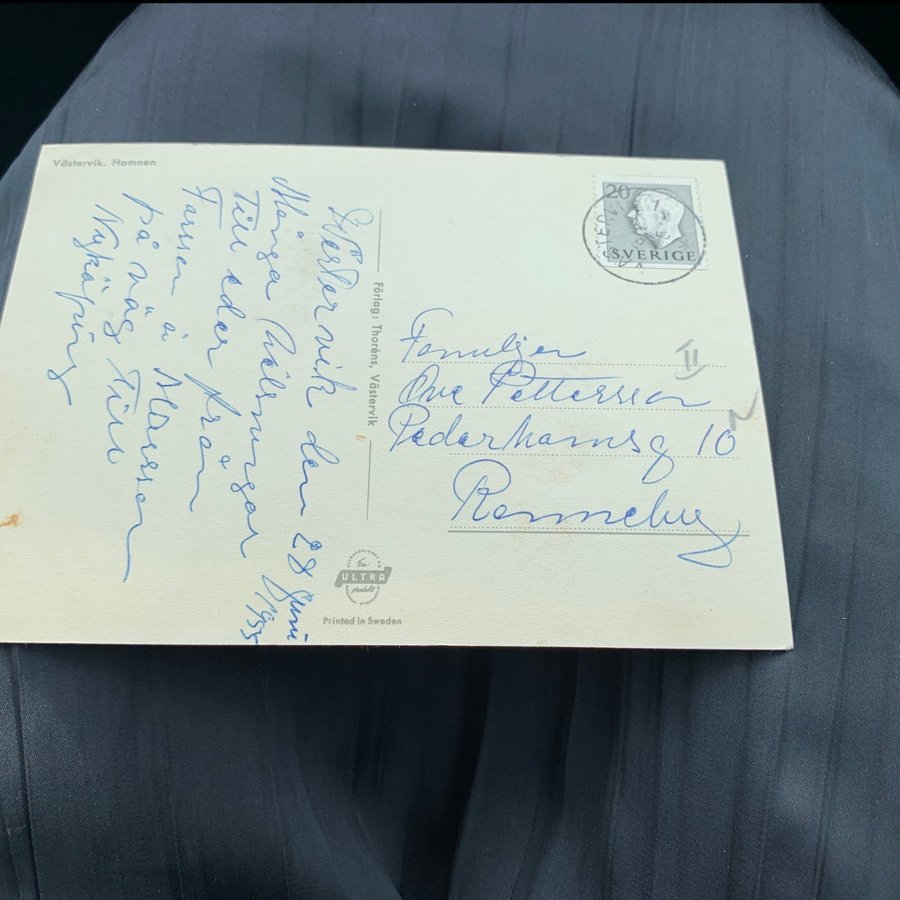 Västervik. Hamnen
Västervik den 28 Juni
1955
Många hälsningar
Till eder från
Farsson å Morsson
på väg till
Nyköping
Förlag: Thoréns, Västervik
ULTRA
produkt
Printed in Sweden
20
SVERIGE
Familjen
Ove Pettersson
Pederhamsg 10
Ronneby
II